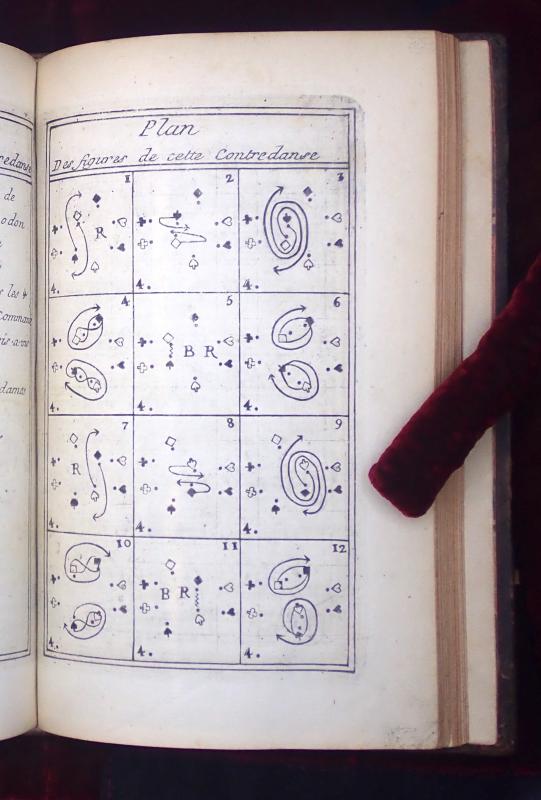 Plan
Des figures de cette Contredanse
de
les 4
1
2
3
R
4.
4.
4.
4
5
6
B R
4.
4.
4.
7
8
9
R
4.
4.
4.
10
11
12
B R
4.
4.
4.